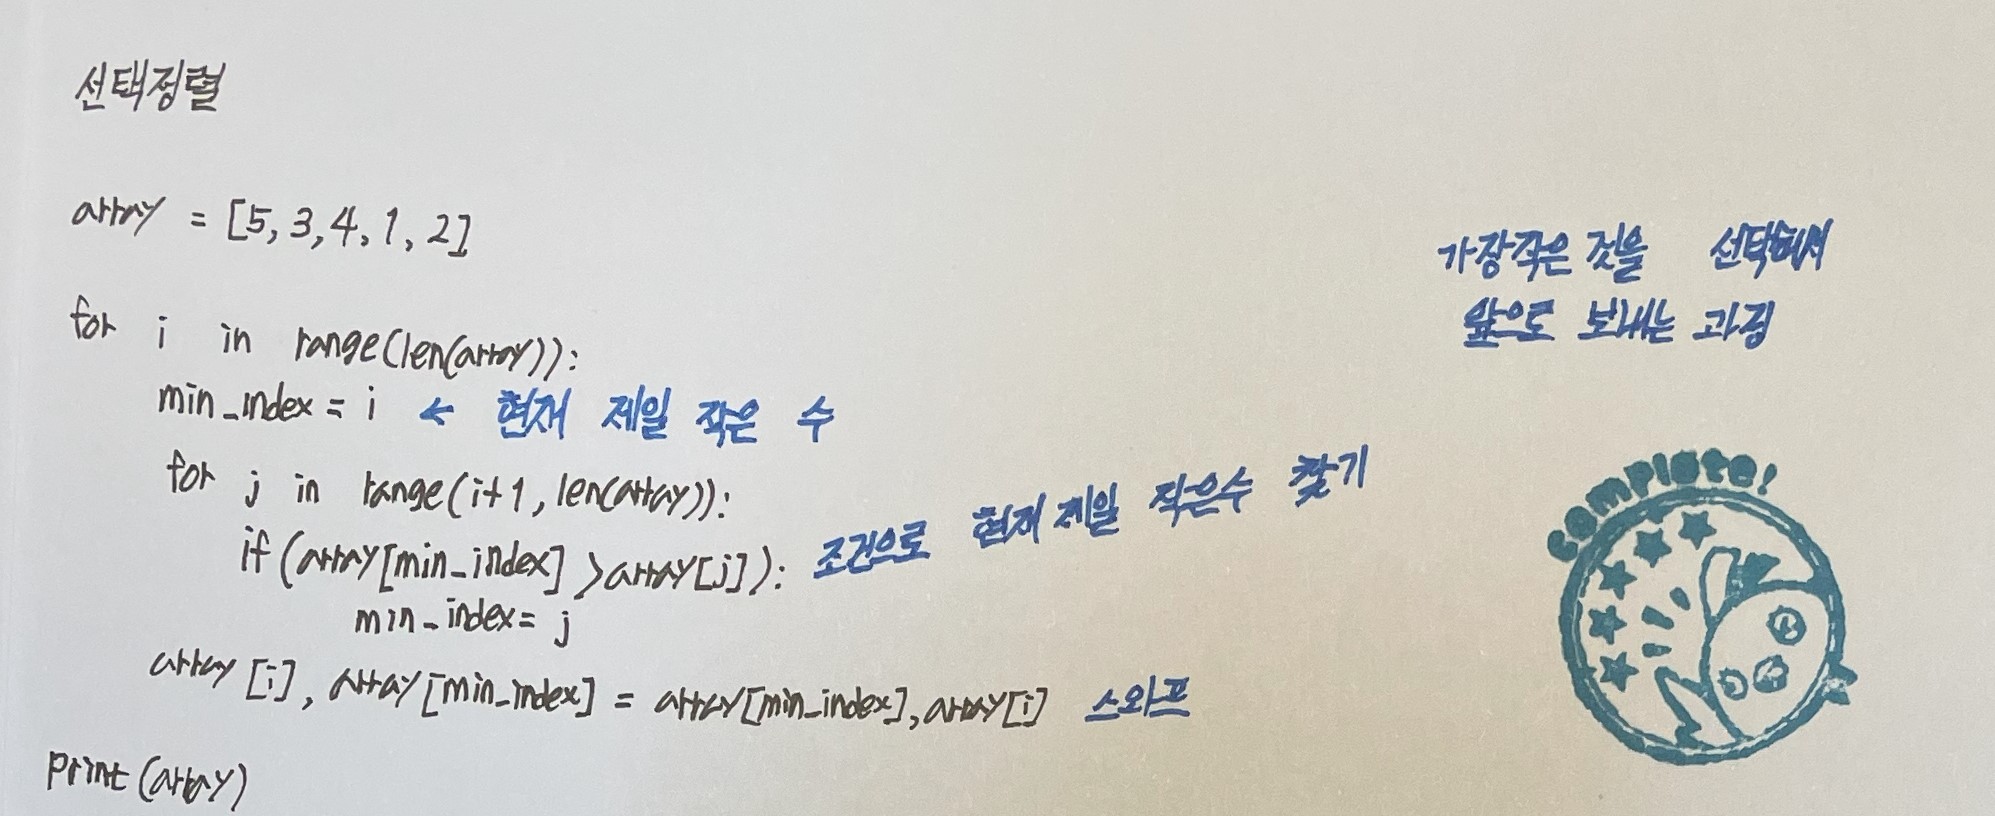 선택정렬
array = [5, 3, 4, 1, 2]
가장작은 것을 선택해서
앞으로 보내는 과정
for i in range(len(array)):
min_index = i ← 현재 제일 작은 수
for j in range(i+1, len(array)):
if (array[min_index] > array[j]): 조건으로 현재 제일 작은수 찾기
min_index = j
array[i], array[min_index] = array[min_index], array[i] 스와프
print(array)
complete!